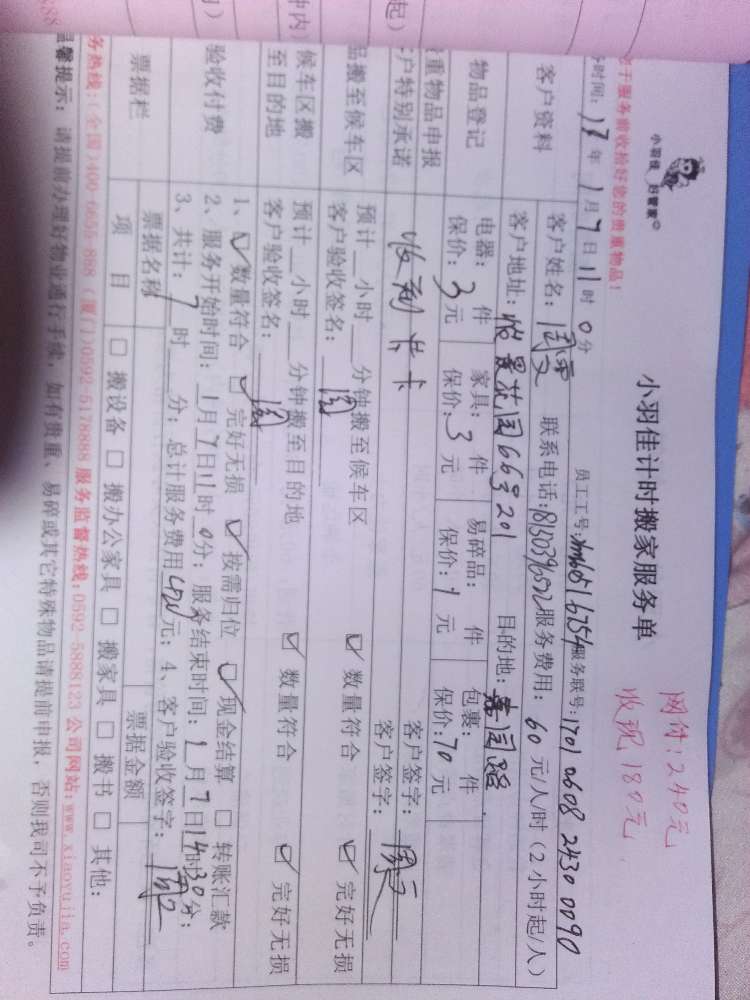 小羽佳 好管家
小羽佳计时搬家服务单
网付:240元
收现180元
于服务前收拾好您的贵重物品!
时间:17年1月7日11时0分
员工工号:
服务联号:1701 0608 2430 0090
客户资料
客户姓名:周
联系电话:
服务费用:60元/人/时(2小时起/人)
客户地址:怡景花园66号201
目的地:嘉园路
物品登记
电器: 件 家具: 件 易碎品: 件 包裹: 件
保价:3元 保价:3元 保价:1元 保价:70元
重物品申报
客户签字:
户特别承诺
收到
卡
客户签字:周
品搬至候车区
预计 小时 分钟搬至候车区
数量符合 完好无损
客户验收签名:周
候车区搬至目的地
预计 小时 分钟搬至目的地
数量符合 完好无损
客户验收签名:周
验收付费
1、 数量符合 完好无损 按需归位 现金结算 转账汇款
2、服务开始时间:1月7日11时0分;服务结束时间:1月7日14时30分;
3、共计:7时 分;总计服务费用420元;4、客户验收签字:周
票据栏
票据名称
票据金额
项目
搬设备 搬办公家具 搬家具 搬书 其他:
务热线:(全国)400-6655-888 (厦门)0592-5178888 服务监督热线:0592-5888123 公司网站:www.xiaoyujia.com
温馨提示:请提前办理好物业通行手续,如有贵重、易碎或其它特殊物品请提前申报,否则我司不予负责。